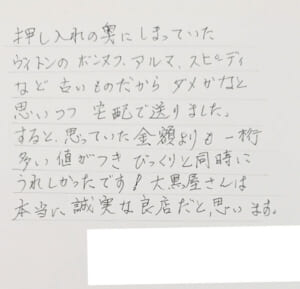 押し入れの奥にしまっていた
ヴィトンのボンヌフ、アルマ、スピーディ
など古いものだからダメかなと
思いつつ 宅配で送りました。
すると、思っていた金額よりも一桁
多い値がつき びっくりと同時に
うれしかったです！大黒屋さんは
本当に誠実な良店だと、思います。